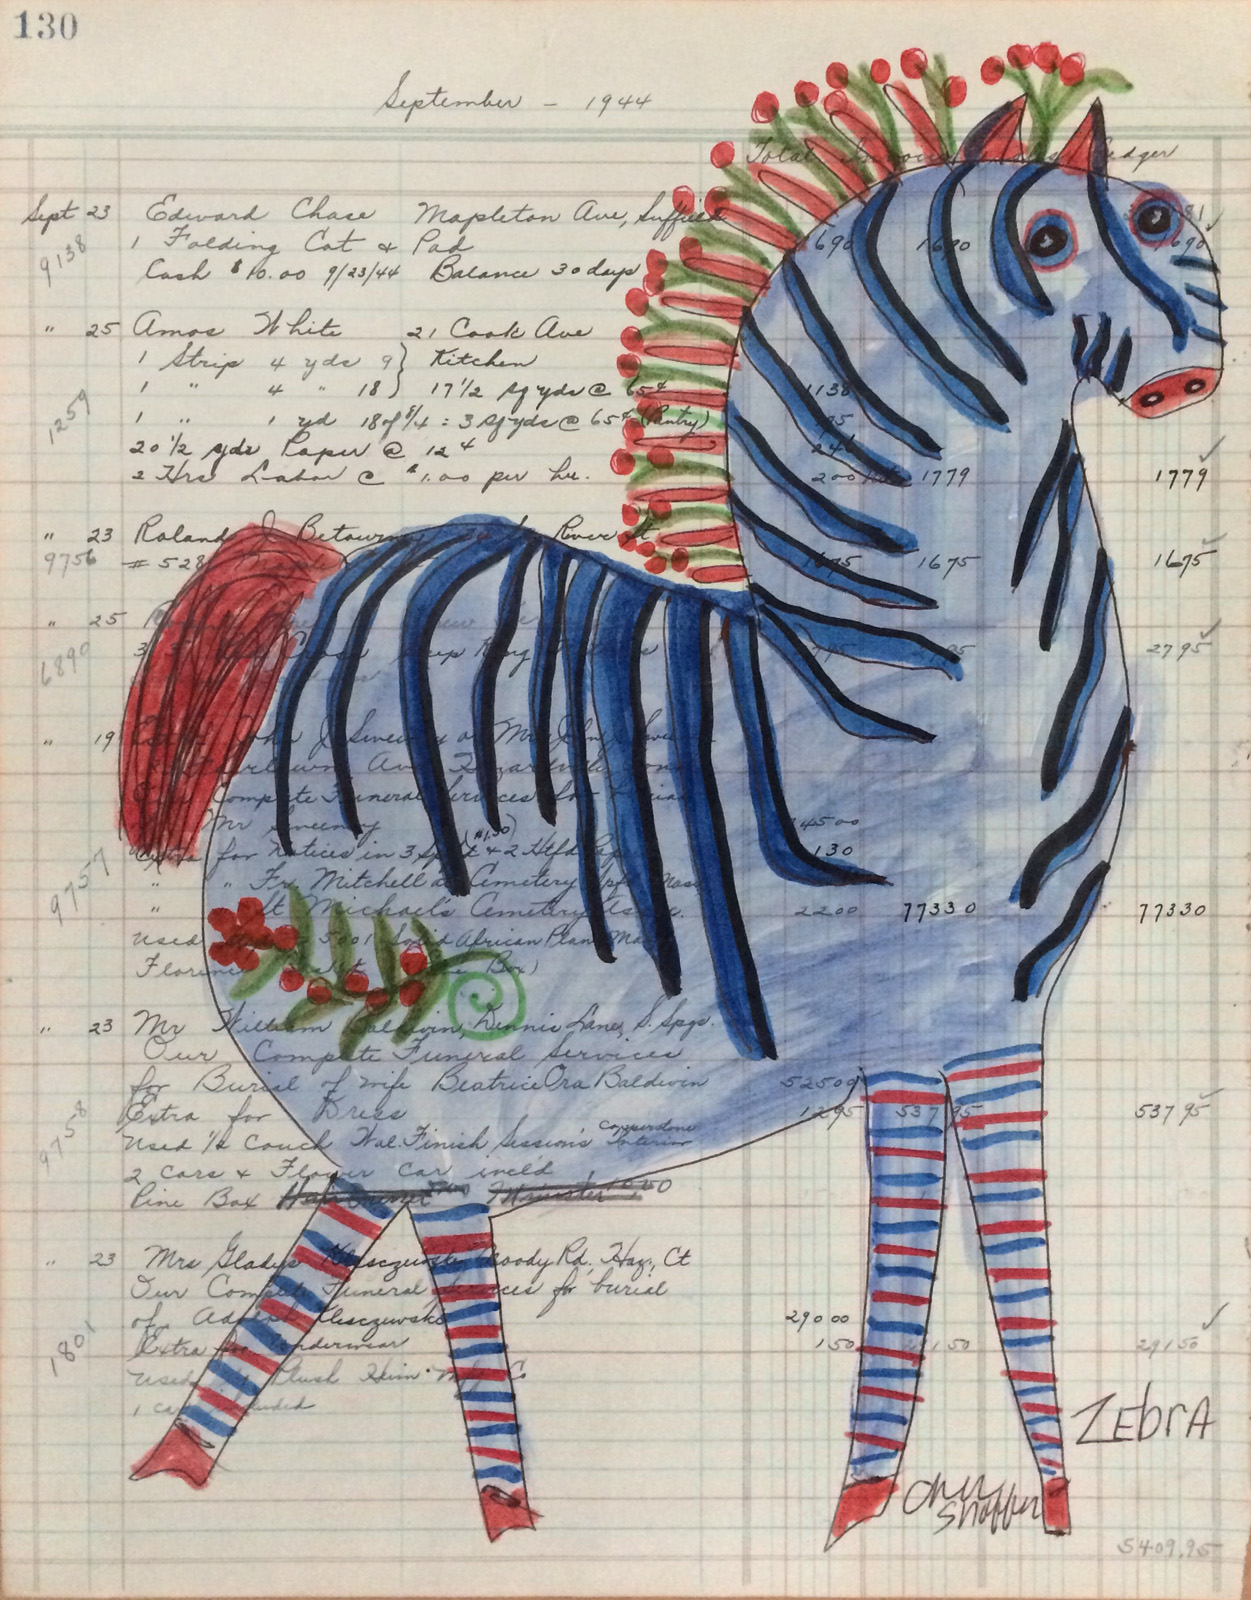 130
September - 1944
Total Ledger
Sept 23 Edward Chase Mapleton Ave, Suffield
9138 1 Folding Cot & Pad 690 1690 1690
Cash $10.00 9/23/44 Balance 30 days
" 25 Amos White 21 Cook Ave
1 Strip 4 yds 9 } Kitchen
1 " 4 " 18 } 17 1/2 sq yds @ 65¢ 1138
1259 1 " 1 yd 18 of 5/4 = 3 sq yds @ 65¢ (Pantry) 195
20 1/2 yds Paper @ 12¢ 246
2 Hrs Labor @ $1.00 per hr. 200 1779 1779
" 23 Roland J Betourney River St
9756 # 528 1675 1675 1675
" 25
6890 3 2795
" 19 John J Sweeney or Mrs John
Ave Hazardville, Conn
Our Complete Funeral Services for
Mr Sweeney 74500
Extra for Notices in 3 Spfld & 2 Htfd 130
9757 " " Fr Mitchell at Cemetery Spfld Mass
" St Michael's Cemetery Assoc. 2200 77330 77330
Used 5001 Solid African Plank Mah
Florence Box)
" 23 Mr William Baldwin, Dennis Lane, S. Spgs.
Our Complete Funeral Services
for Burial of wife Beatrice Ora Baldwin 52500
Extra for Dress 1295 53795 53795
9758 Used 1/2 Couch Wal. Finish Session's Copperdone Interior
2 Cars & Flower Car incld
Pine Box
" 23 Mrs Gladys Kleсzewski Moody Rd, Haz, Ct
Our Complete Funeral Services for burial
of Adolph 29000
1801 Extra for Underwear 150 29150 29150
Used Plush
1 car included
ZEbrA
Shaffer
5409.95